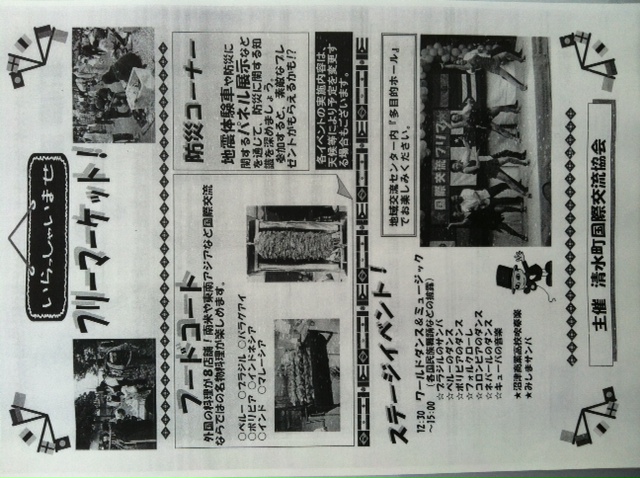 いらっしゃいませ
フリーマーケット！
フードコート
外国の料理が８店舗！南米や東南アジアなど国際交流
ならではの名物料理が楽しめます。
○ペルー ○ブラジル ○パラグアイ
○ボリビア ○インドネシア
○インド ○マレーシア
防災コーナー
地震体験車や防災に
関するパネル展示など
を通じて、防災に関する知
識を深めましょう。
参加すると、素敵なプレ
ゼントがもらえるかも!?
各イベントの実施内容は、
天候等により予定を変更す
る場合もございます。
ステージイベント！
12:30 ワールドダンス＆ミュージック
～15:00 （各国民族舞踊などの披露）
☆ブラジルのサンバ
☆ペルーのダンス
☆ボリビアのダンス
☆フォルクローレ
☆コロンビアのダンス
☆ネパールのダンス
☆キューバの音楽
★沼津商業高校吹奏楽
★みしまサンバ
地域交流センター内『多目的ホール』
でお楽しみください。
国際交流フリマ
主催 清水町国際交流協会